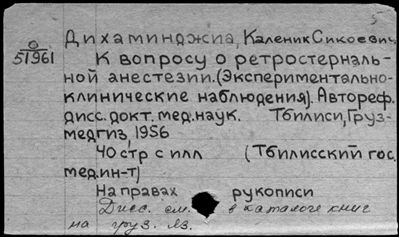 Дихаминджиа, Каленик Сикоевич.
О
51961
К вопросу о ретростерналь-
ной анестезии. (Экспериментально-
клинические наблюдения). Автореф.
дисс. докт. мед. наук. Тбилиси, Груз-
медгиз, 1956
40 стр с илл (Тбилисский гос.
мед. ин-т)
На правах рукописи
Дисс. см. в каталоге книг
на груз. яз.